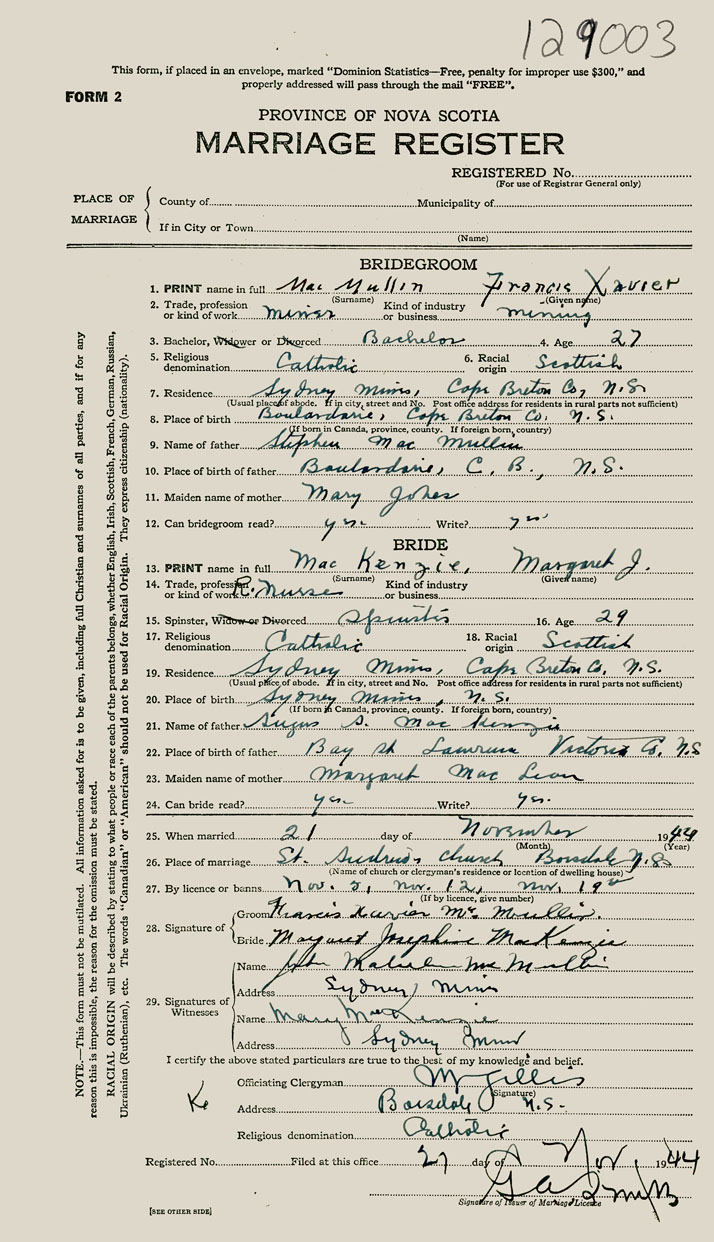 129003
This form, if placed in an envelope, marked "Dominion Statistics—Free, penalty for improper use $300," and
properly addressed will pass through the mail "FREE".
FORM 2
PROVINCE OF NOVA SCOTIA
MARRIAGE REGISTER
REGISTERED No.
(For use of Registrar General only)
PLACE OF MARRIAGE
County of Municipality of
If in City or Town
(Name)
BRIDEGROOM
1. PRINT name in full Mac Mullin Francis Xavier
(Surname) (Given name)
2. Trade, profession or kind of work miner Kind of industry or business mining
3. Bachelor, Widower or Divorced Bachelor 4. Age 27
5. Religious denomination Catholic 6. Racial origin Scottish
7. Residence Sydney Mines, Cape Breton Co, N.S.
(Usual place of abode. If in city, street and No. Post office address for residents in rural parts not sufficient)
8. Place of birth Boulardarie, Cape Breton Co. N.S.
(If born in Canada, province, county. If foreign born, country)
9. Name of father Stephen Mac Mullin
10. Place of birth of father Boulardarie, C. B., N.S.
11. Maiden name of mother Mary Jones
12. Can bridegroom read? yes. Write? yes
BRIDE
13. PRINT name in full Mac Kenzie, Margaret J.
(Surname) (Given name)
14. Trade, profession or kind of work R. Nurse Kind of industry or business
15. Spinster, Widow or Divorced Spinster 16. Age 29
17. Religious denomination Catholic 18. Racial origin Scottish
19. Residence Sydney Mines, Cape Breton Co, N.S.
(Usual place of abode. If in city, street and No. Post office address for residents in rural parts not sufficient)
20. Place of birth Sydney Mines, N.S.
(If born in Canada, province, county. If foreign born, country)
21. Name of father Angus S. Mac Kenzie
22. Place of birth of father Bay St Lawrence Victoria Co. N.S
23. Maiden name of mother Margaret Mac Lean
24. Can bride read? yes. Write? yes.
25. When married 21 day of November 1944
(Month) (Year)
26. Place of marriage St. Andrew's Church Boisdale N.S.
(Name of church or clergyman's residence or location of dwelling house)
27. By licence or banns Nov. 5, Nov. 12, Nov. 19th
(If by licence, give number)
28. Signature of
Groom Francis Xavier Mc Mullin.
Bride Margaret Josephine MacKenzie
29. Signatures of Witnesses
Name John Malcolm Mc Mullin
Address Sydney Mines
Name Mary MacKenzie
Address Sydney Mines
I certify the above stated particulars are true to the best of my knowledge and belief.
Officiating Clergyman M Gillis
(Signature)
Address Boisdale N.S.
Religious denomination Catholic
Registered No. Filed at this office 27 day of Nov. 1944
Signature of Issuer of Marriage Licence
[SEE OTHER SIDE]
NOTE.—This form must not be mutilated. All information asked for is to be given, including full Christian and surnames of all parties, and if for any
reason this is impossible, the reason for the omission must be stated.
RACIAL ORIGIN will be described by stating to what people or race each of the parents belongs, whether English, Irish, Scottish, French, German, Russian,
Ukrainian (Ruthenian), etc. The words "Canadian" or "American" should not be used for Racial Origin. They express citizenship (nationality).